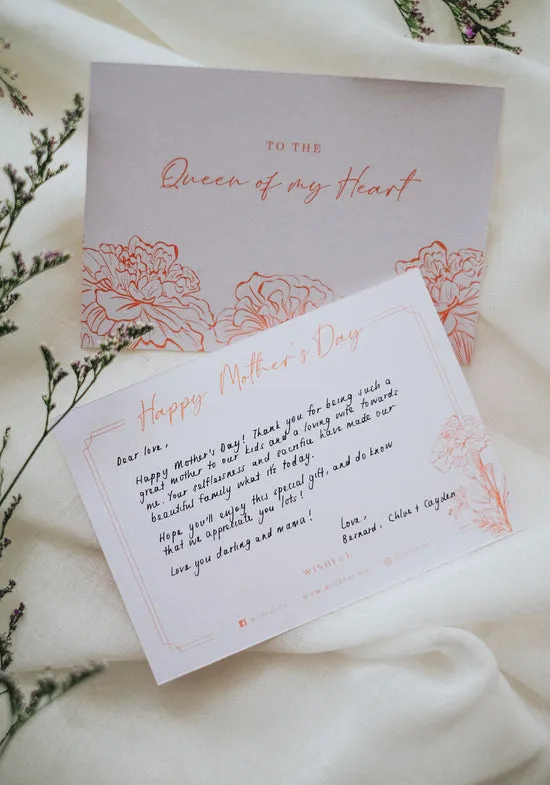 TO THE
Queen of my Heart
Happy Mother's Day
Dear love,
Happy Mother's Day! Thank you for being such a
great mother to our kids and a loving wife towards
me. Your selflessness and sacrifice have made our
beautiful family what it's today.
Hope you'll enjoy this special gift, and do know
that we appreciate you lots!
Love you darling and mama!
Love,
Bernard, Chloe + Cayden
WISHFUL